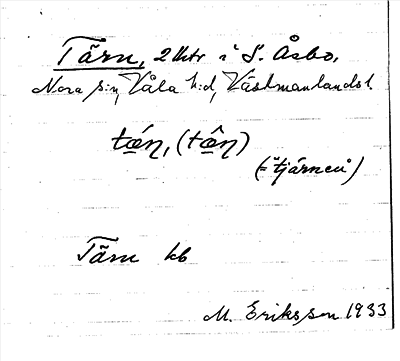 Tärn, 2 lhtr i S. Åsbo,
Nora s:n, Våla h:d, Västmanlands l.
tǽɳ, (tæ̂ɳ)
(="tjärnen")
Tärn kb
M. Eriksson 1933